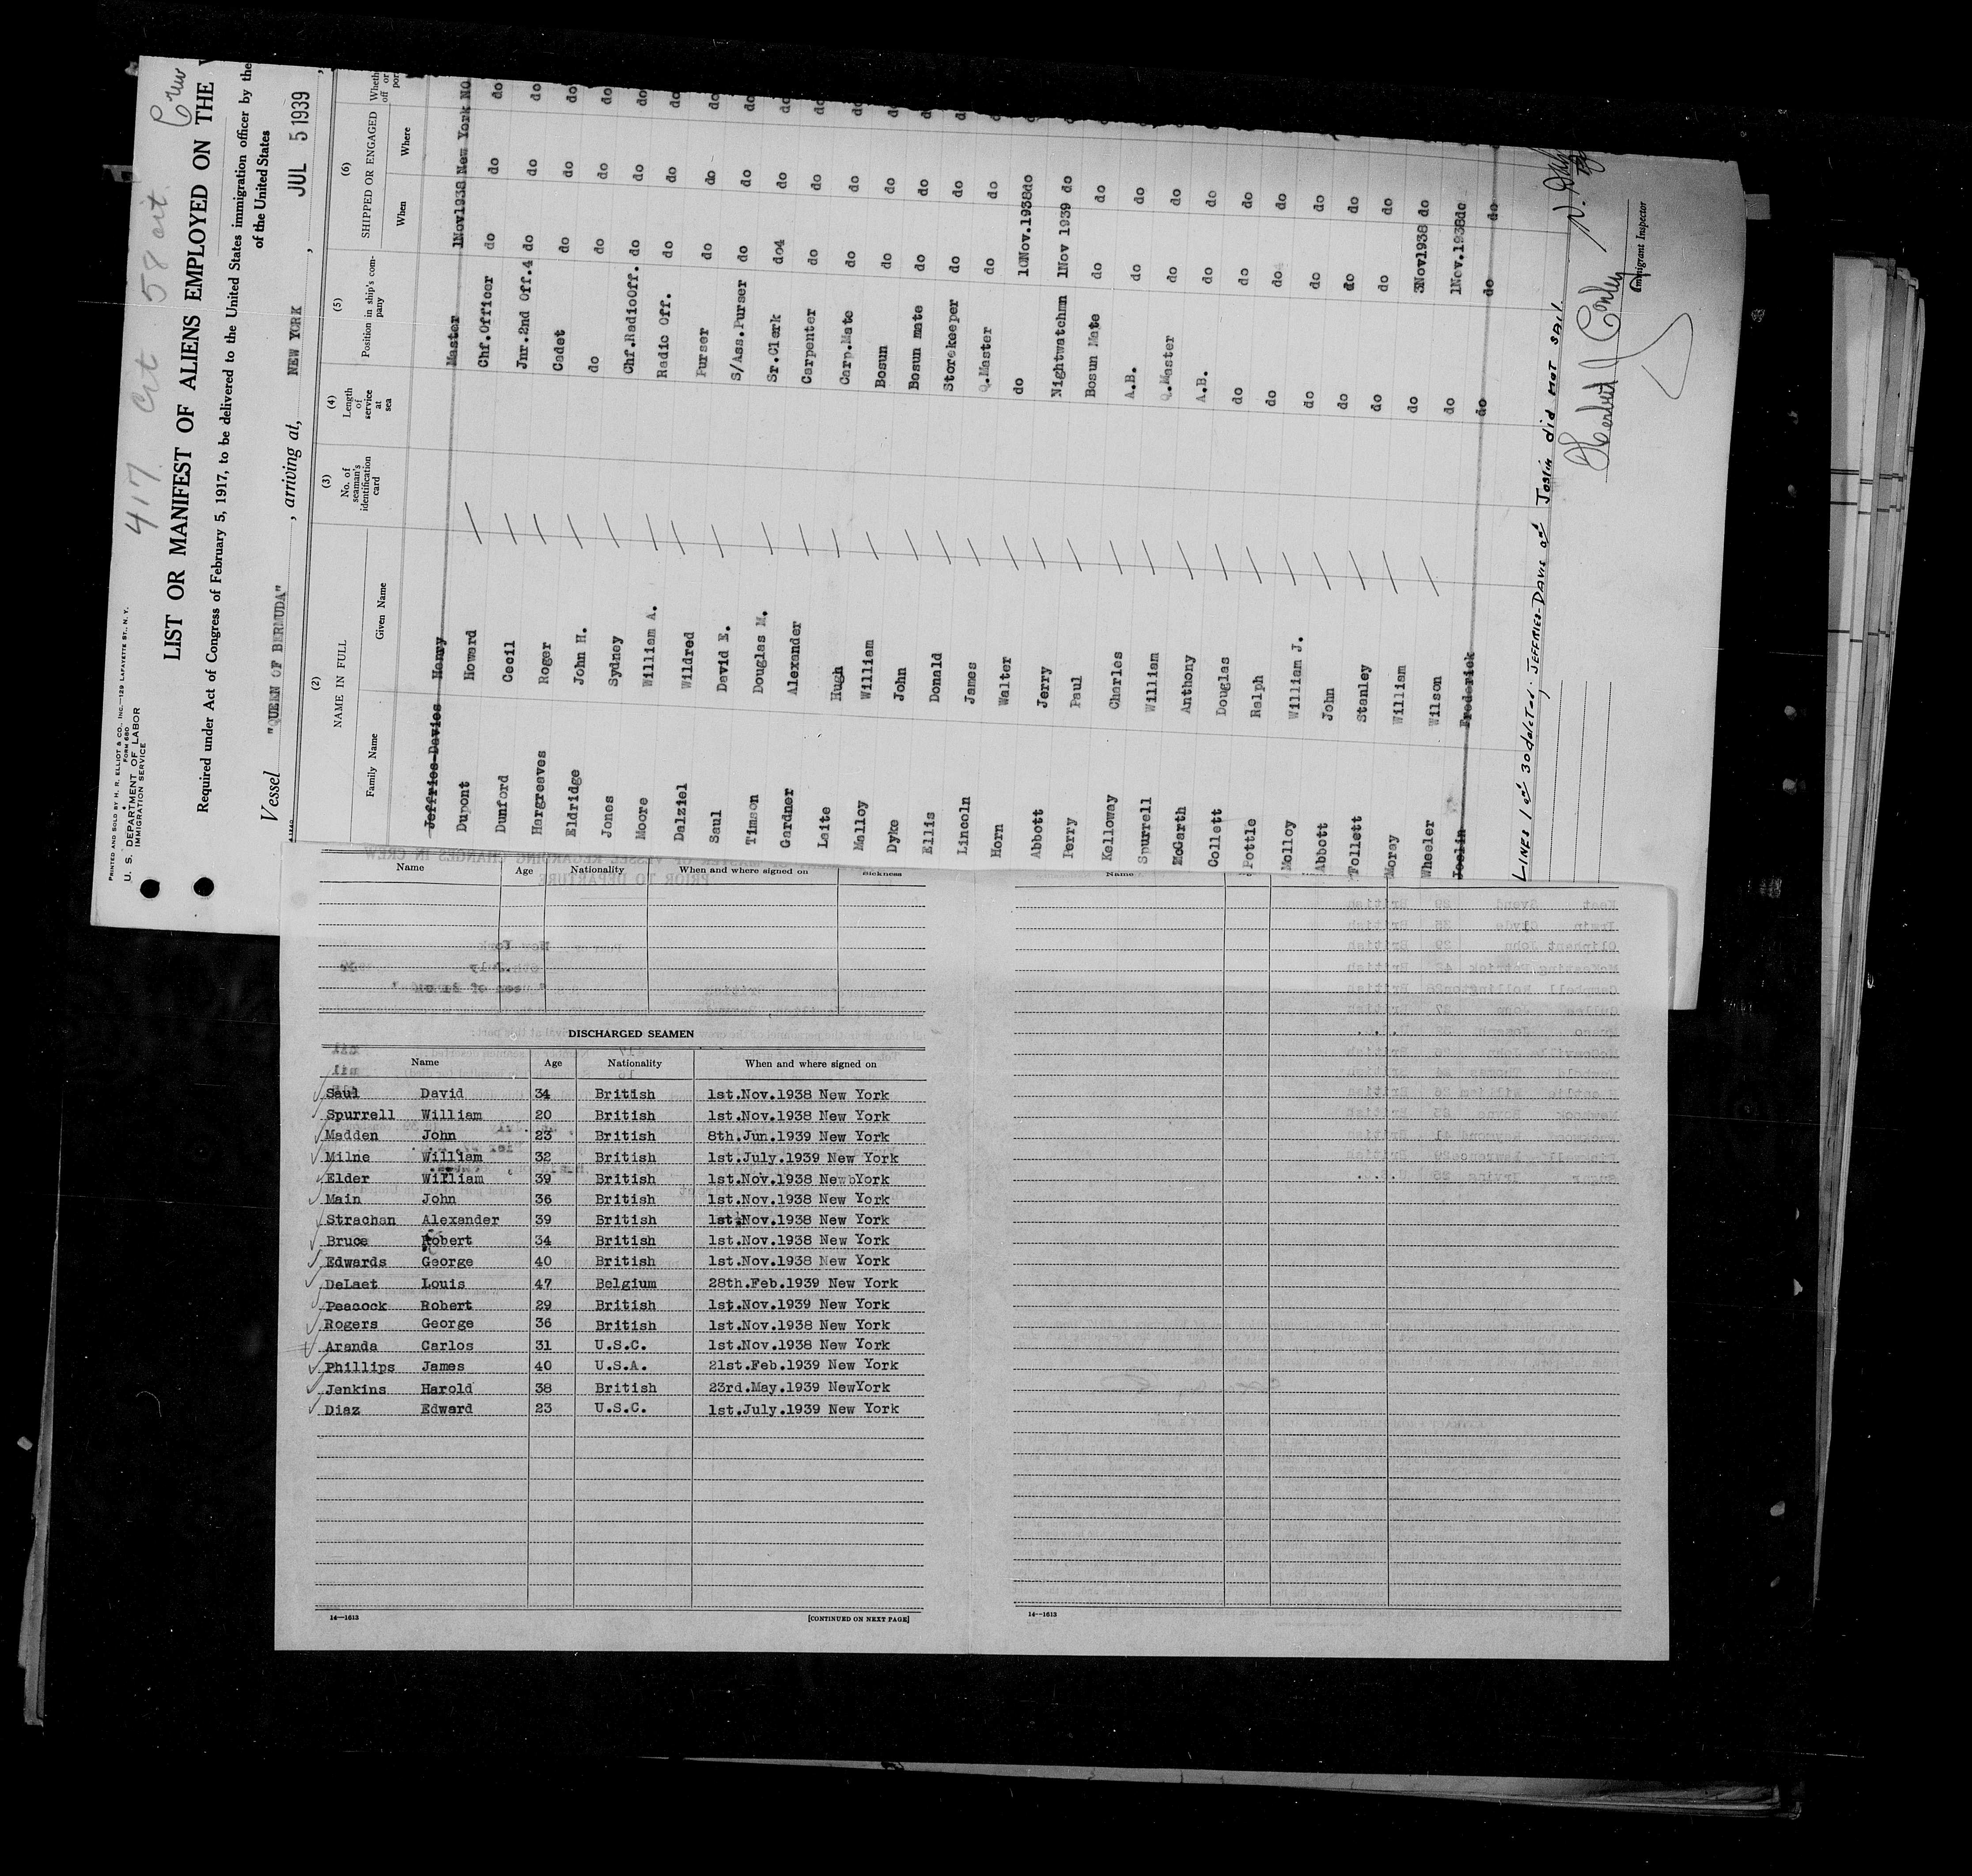 417 Crt 58 cit. Crew
PRINTED AND SOLD BY H. R. ELLIOT & CO., INC.—129 LAFAYETTE ST., N. Y.
FORM 680
U. S. DEPARTMENT OF LABOR
IMMIGRATION SERVICE
LIST OR MANIFEST OF ALIENS EMPLOYED ON THE
Required under Act of Congress of February 5, 1917, to be delivered to the United States immigration officer by the
of the United States
Vessel "QUEEN OF BERMUDA" , arriving at, NEW YORK , JUL 5 1939 ,
(2) (3) (4) (5) (6)
NAME IN FULL No. of seaman's identification card Length of service at sea Position in ship's company SHIPPED OR ENGAGED
Family Name Given Name When Where
Jeffries-Davies Henry Master 1Nov1938 New York NO
Dupont Howard Chf.Officer do do do
Dunford Cecil Jnr.2nd Off.4 do do do
Hargreaves Roger Cadet do do do
Eldridge John H. do do do do
Jones Sydney Chf.RadioOff. do do do
Moore William A. Radio Off. do do do
Dalziel Wildred Purser do do do
Saul David E. S/Ass.Purser do do do
Timson Douglas M. Sr.Clerk do4 do do
Gardner Alexander Carpenter do do do
Laite Hugh Carp.Mate do do do
Malloy William Bosun do do do
Dyke John Bosun mate do do do
Ellis Donald Storekeeper do do do
Lincoln James Q.Master do do
Horn Walter do 10Nov.1938do
Abbott Jerry Nightwatchmn 1Nov 1939 do
Perry Paul Bosun Mate do do
Kelloway Charles A.B. do do
Spurrell William Q.Master do do
McGarth Anthony A.B. do do
Collett Douglas do do do
Pottle Ralph do do do
Molloy William J. do do do
Abbott John do do do
Follett Stanley do do do
Moray William do 3Nov1938 do
Wheeler Wilson do 1Nov.1938do
Joslin Frederick do do do
LINES 1 and 30 deleted; JEFFRIES-DAVIS and Joslin did not SAIL.
Herbert J Conley
Immigrant Inspector
Name Age Nationality When and where signed on
DISCHARGED SEAMEN
Name Age Nationality When and where signed on
Saul David 34 British 1st.Nov.1938 New York
Spurrell William 20 British 1st.Nov.1938 New York
Madden John 23 British 8th.Jun.1939 New York
Milne William 32 British 1st.July.1939 New York
Elder William 39 British 1st.Nov.1938 NewbYork
Main John 36 British 1st.Nov.1938 New York
Strachan Alexander 39 British 1st.Nov.1938 New York
Bruce Robert 34 British 1st.Nov.1938 New York
Edwards George 40 British 1st.Nov.1938 New York
DeLaet Louis 47 Belgium 28th.Feb.1939 New York
Peacock Robert 29 British 1st.Nov.1939 New York
Rogers George 36 British 1st.Nov.1938 New York
Aranda Carlos 31 U.S.C. 1st.Nov.1938 New York
Phillips James 40 U.S.A. 21st.Feb.1939 New York
Jenkins Harold 38 British 23rd.May.1939 NewYork
Diaz Edward 23 U.S.C. 1st.July.1939 New York
14—1613 [CONTINUED ON NEXT PAGE]
14—1613